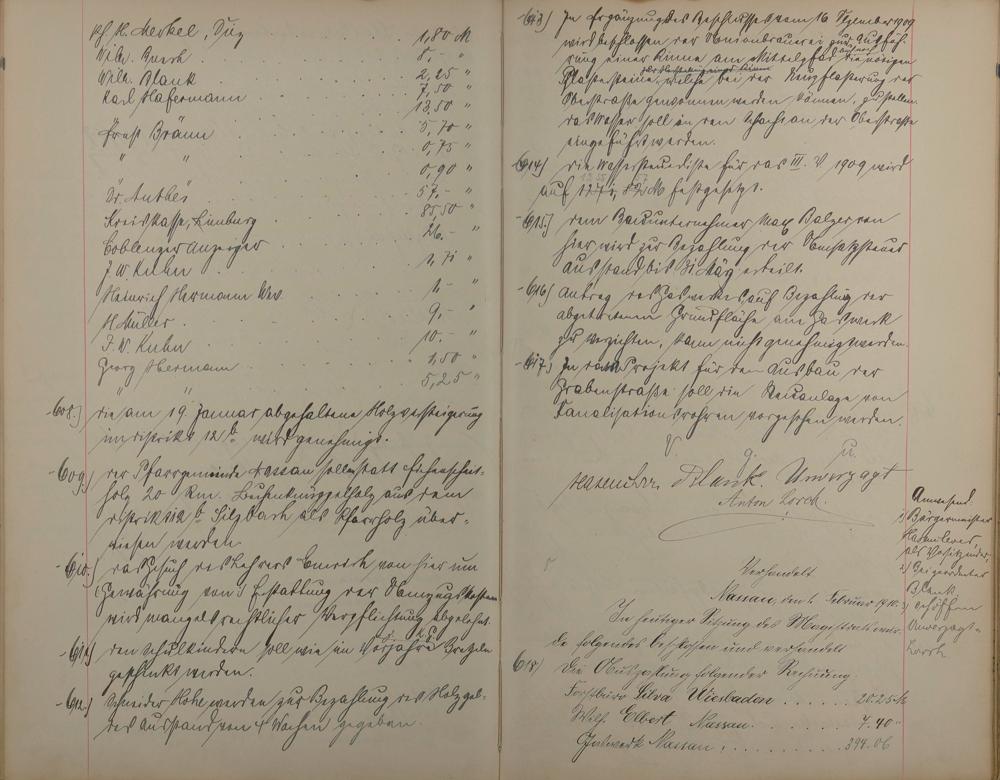 H. Merkel, Sieg . . . 1,80 M
Wilh. Busch . . . 8,- "
Wilh. Blank . . . 2,25 "
Karl Hafermann . . . 7,50 "
13,50 "
Ernst Bräun . . . 5,70 "
" " . . . 0,75 "
0,90 "
Dr. Anthes . . . 57,- "
Kreiskasse, Limburg . . . 85,50 "
Coblenzer Anzeiger . . . 26,- "
J. W. Kuhn . . . 1,71 "
Heinrich Hermann Wwe. . . . 1,- "
H. Müller . . . 9,- "
J. W. Kuhn . . . 10,- "
Georg Hermann . . . 1,50 "
" " . . . 5,25 "
608.) die am 19. Januar abgehaltene Holzversteigerung
im Distrikt 12 b wird genehmigt.
609.) der Pfarrgemeinde Nassau soll statt Eichenscheit-
holz 20 Rm. Buchenknüppelholz aus dem
Distrikt 12 b Silzbach als Pfarrholz über-
wiesen werden.
610.) das Gesuch des Lehrers von hier um
Gewährung von Erstattung der Umzugskosten
wird mangels rechtlicher Verpflichtung abgelehnt.
611.) den Schulkindern soll wie im Vorjahre Bretzeln
geschenkt werden.
612.) Schneider Hohe werden zur Bezahlung des Holzgel-
des Ausstand von 4 Wochen gegeben.
613.) In Ergänzung des Beschlusses vom 16. Dezember 1909
wird beschlossen der Unionbrauerei zur Ausfüh-
rung einer Rinne am Mittelpfad die nötigen
Pflastersteine, welche bei der Neupflasterung der
Obestraße gewonnen werden können, zu stellen.
das Wasser soll in den Schacht an der Obestraße
eingeführt werden.
614.) die Wassersteuerliste für das III. V 1909 wird
auf M festgesetzt.
615.) dem Bauunternehmer Max Balzer von
hier wird zur Bezahlung der Umsatzsteuer
Ausstand bis 31 März erteilt.
616.) Antrag des Gaswerkes auf Bezahlung der
abgetretenen Grundfläche am Gaswerk
zu verzichten, kann nicht genehmigt werden.
617.) In das Projekt für den Ausbau der
Grabenstraße soll die Neuanlage von
Kanalisationsrohren vorgesehen werden.
V. g. u.
Hasenclever. Blank. Unverzagt
Anton Lorch.
Anwesend
1) Bürgermeister
Hasenclever,
als Vorsitzender,
2) Beigeordneter
Blank
3) Schöffen
Unverzagt
Lorch
Verhandelt
Nassau, den 1. Februar 1910.
In heutiger Sitzung des Magistrats wur-
de folgendes beschlossen und verhandelt
618.) Die Auszahlung folgender Rechnung.
Forstbüro Silva Wiesbaden . . . . . . 20.25 M
Wilh. Elbert Nassau . . . . . 7.40 "
Gaswerk Nassau . . . . . . . 394.06